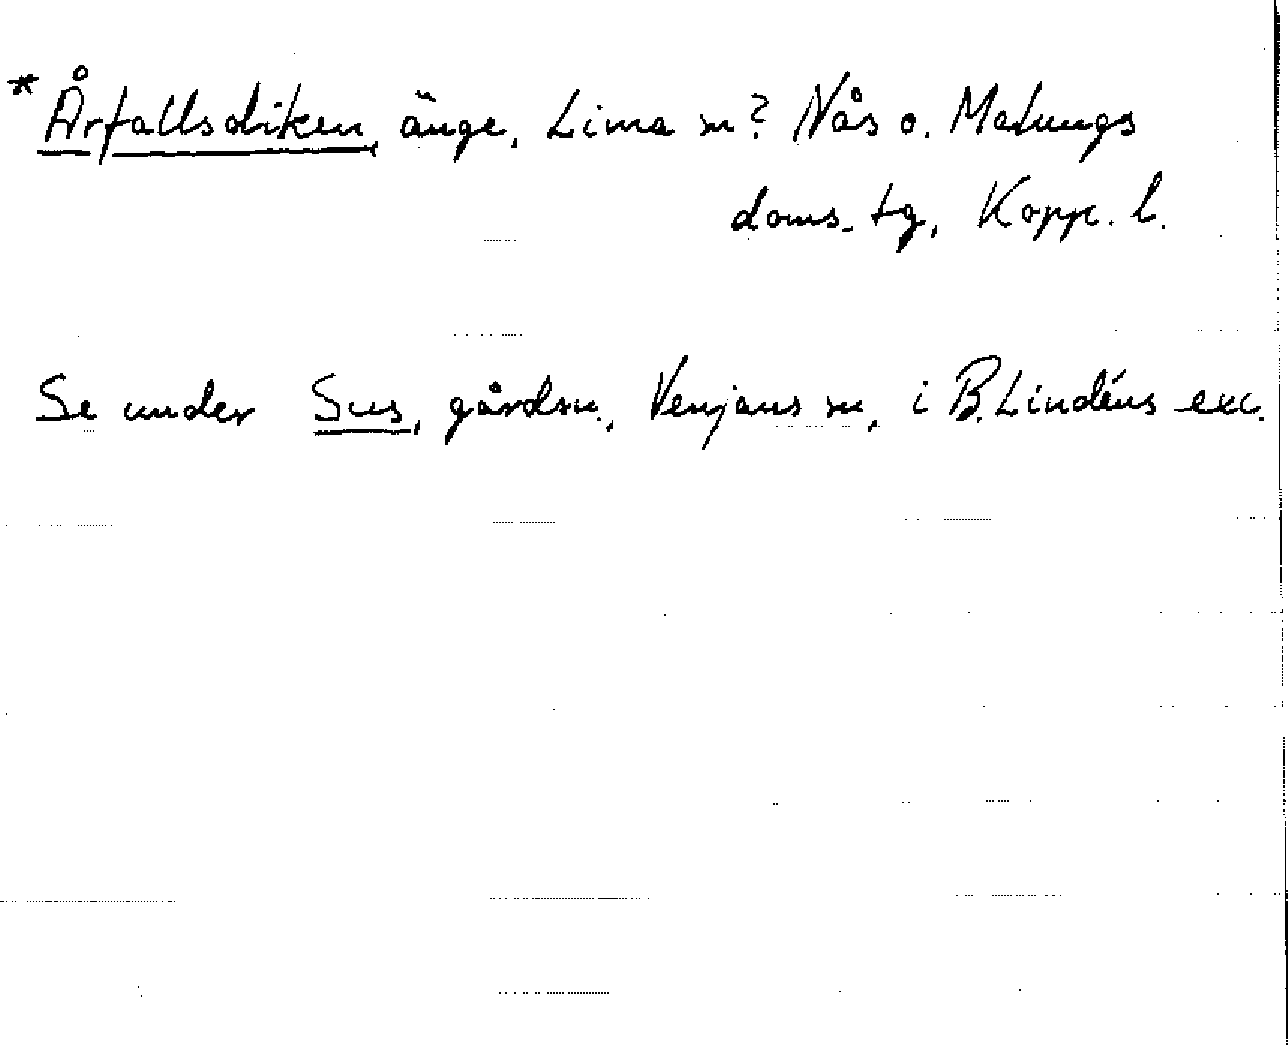 *Årfallsdiken, änge, Lima sn? Nås o. Malungs
doms. tg, Kopp. l.
Se under Sus, gårdsn., Venjans sn, i B. Lindéns exc.